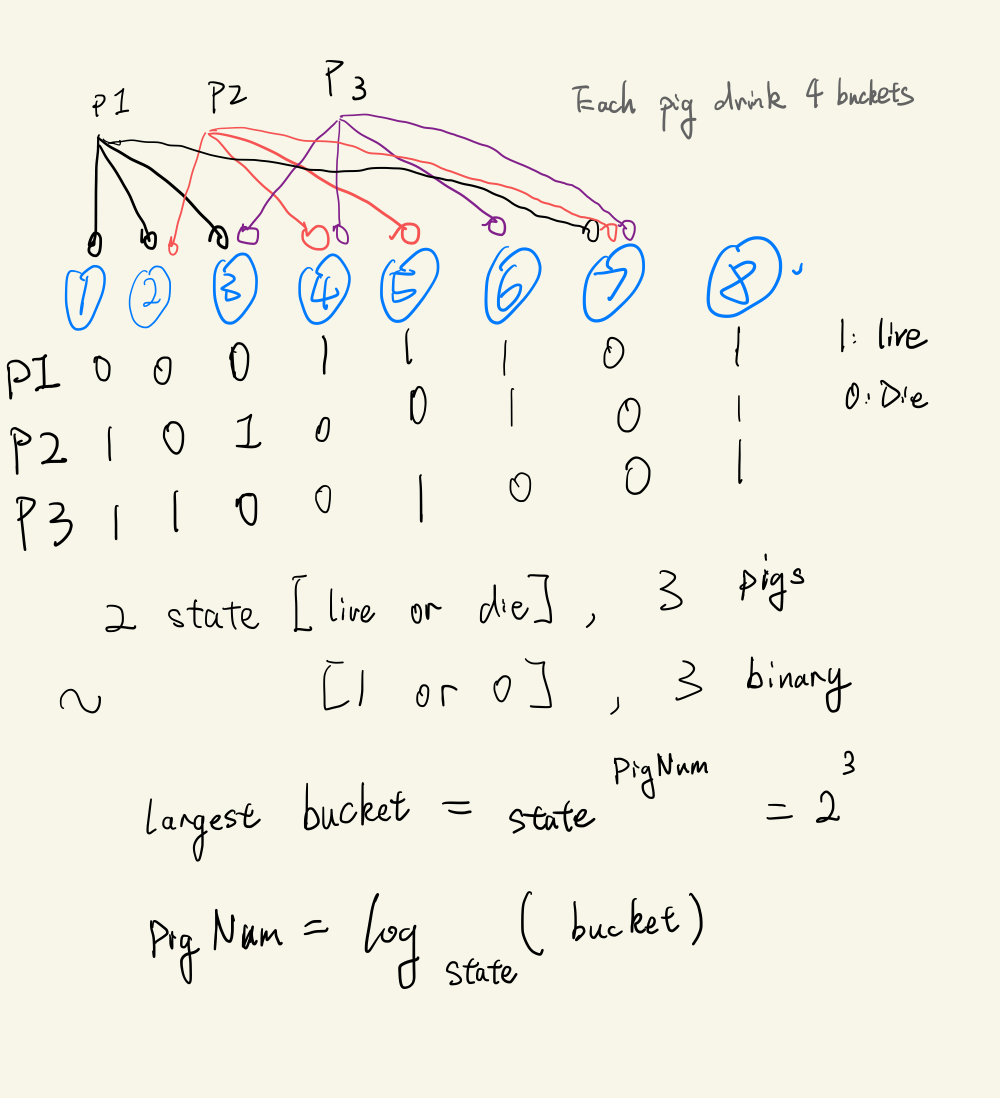 P1 P2 P3
Each pig drink 4 buckets
1 2 3 4 5 6 7 8
P1 0 0 0 1 1 1 0 1
1: live
P2 1 0 1 0 0 1 0 1
0: Die
P3 1 1 0 0 1 0 0 1
2 state [live or die], 3 pigs
~ [1 or 0], 3 binary
largest bucket = state^PigNum = 2^3
Pig Num = log_state (bucket)